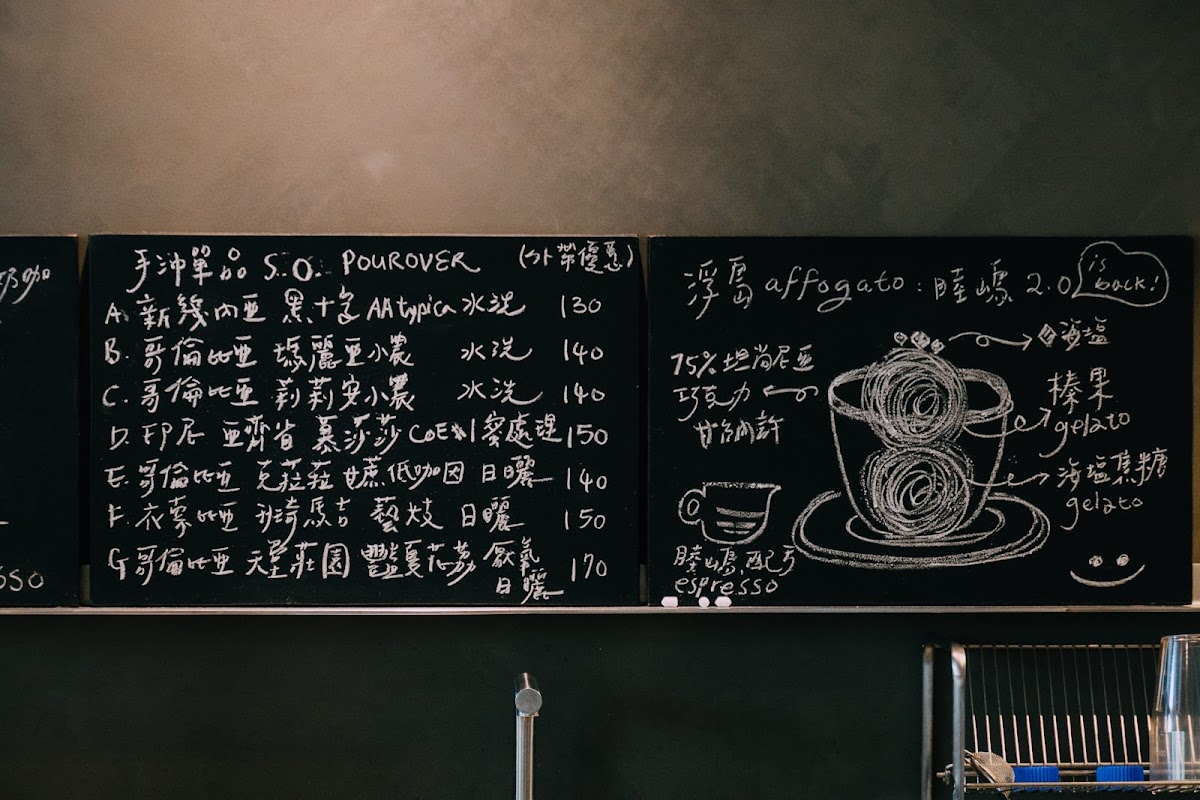 手沖單品 S.O. POUROVER (外帶優惠)
A. 新幾內亞 黑十字 AA typica 水洗 130
B. 哥倫比亞 瑪麗亞小農 水洗 140
C. 哥倫比亞 莉莉安小農 水洗 140
D. 印尼 亞齊省 慕莎莎 CoE#1 蜜處理 150
E. 哥倫比亞 克菈菈 甘蔗低咖因 日曬 140
F. 衣索比亞 羽琦馬吉 藝妓 日曬 150
G 哥倫比亞 天堂莊園 豔夏芯荔 厭氧日曬 170
浮島 affogato : 睦嶼 2.0 is back!
海塩
75% 坦尚尼亞
巧克力
甘納許
榛果
gelato
海塩焦糖
gelato
睦嶼配方
espresso